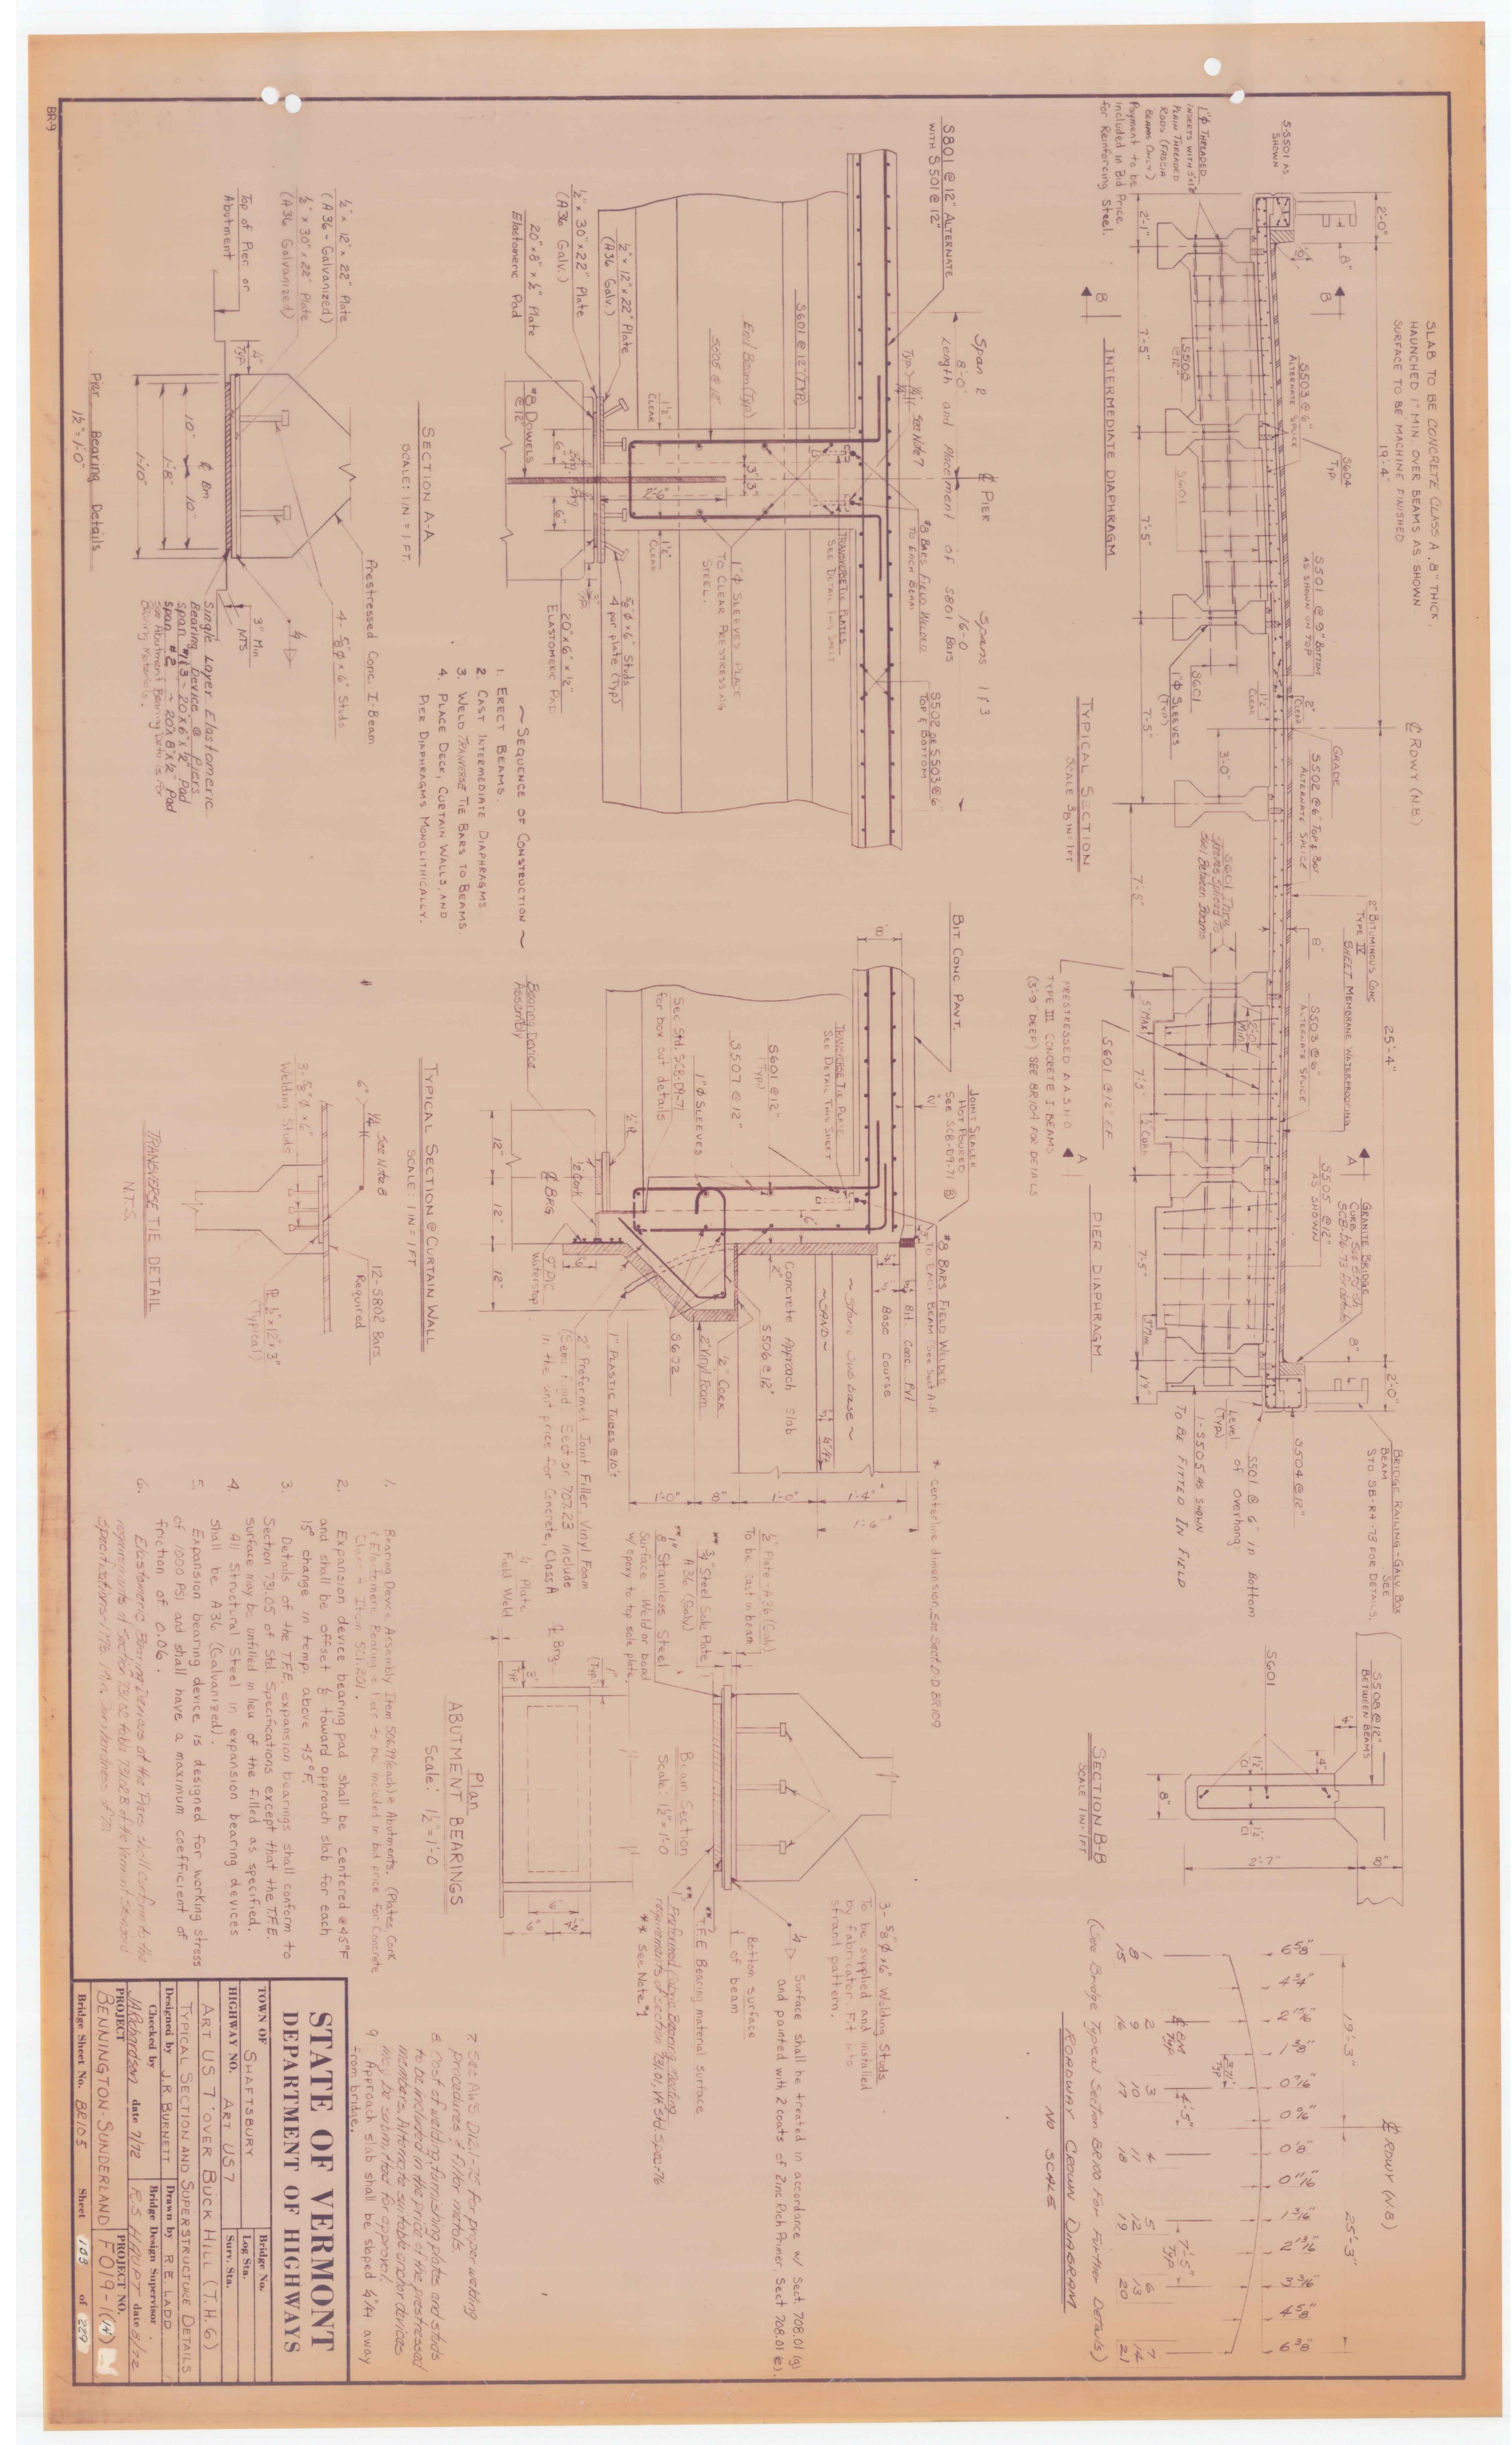 SLAB TO BE CONCRETE CLASS A, 8" THICK,
HAUNCHED 1" MIN. OVER BEAMS AS SHOWN
SURFACE TO BE MACHINE FINISHED
19'-4"
℄ RDWY (N.B.)
25'-4"
2'-0"
8"
2'-0"
8"
5-S501 AS
SHOWN
1"Φ THREADED
PLAIN THREADED
RODS (FASCIA
BEAMS ONLY)
Payment to be
included in Bid Price
for Reinforcing Steel.
S503 @ 6"
ALTERNATE SPLICE
S604
TYP.
S501 @ 9" BOTTOM
AS SHOWN ON TOP
2"
CLEAR
1½"
CLEAR
GRADE
S502 @ 6" TOP & BOT
ALTERNATE SPLICE
2" BITUMINOUS CONC
TYPE IV
SHEET MEMBRANE WATERPROOFING
8"
S503 @ 6"
ALTERNATE SPLICE
A
S505 @ 12"
AS SHOWN
GRANITE BRIDGE
CURB
BRIDGE RAILING - GALV. BOX
BEAM SEE
STD. SB-R4-73 FOR DETAILS.
S504 @ 12"
S501 @ 6" in Bottom
of Overhang
Level
(Typ)
1-S505 AS SHOWN
TO BE FITTED IN FIELD
B
S508
@ 12"
S601
S601
1"Φ SLEEVES
(TYP)
3'-0"
5" MAX
½" CORK
3" Min
2'-1"
7'-5"
7'-5"
7'-5"
7'-5"
7'-5"
7'-5"
1'9"
B
INTERMEDIATE DIAPHRAGM
TYPICAL SECTION
SCALE ⅜ IN = 1 FT
PRESTRESSED A.A.S.H.O.
TYPE III CONCRETE I BEAMS
(3'-9" DEEP) SEE BR10A FOR DETAILS
S601 @ 12" EF
A
PIER DIAPHRAGM
S508 @ 12"
BETWEEN BEAMS
S601
4"
8"
2'-7"
8"
SECTION B-B
SCALE 1 IN = 1 FT
19'-3"
℄ RDWY (N.B)
25'-3"
℄ BM
TYP
4'-5"
7'-5"
TYP
1 2 3 4 5 6 7
8 9 10 11 12 13 14
15 16 17 18 19 20 21
(See Bridge Typical Section BR100 For Further Details)
ROADWAY CROWN DIAGRAM
NO SCALE
S801 @ 12" ALTERNATE
WITH S501 @ 12"
Span 2
℄ PIER
Spans 1 & 3
8'-0"
16'-0
Length and Placement of S801 Bars
Typ. See Note 7
#8 BARS FIELD WELDED
TO EACH BEAM
S502 OR S503 @ 6"
TOP & BOTTOM
TRANSVERSE TIE PLATES
SEE DETAIL THIS SHEET
S601 @ 12" (TYP.)
End Beam (Typ)
3" 3"
S505 @ 12"
1"Φ SLEEVES PLACE
TO CLEAR PRESTRESSING
STEEL.
1½"
CLEAR
1½"
CLEAR
2'-6"
6" Brg
Brg 6"
½" x 12" x 22" Plate
(A36 Galv.)
½" x 30" x 22" Plate
(A36 Galv.)
20" x 8" x ½" Plate
Elastomeric Pad
#8 DOWELS
@ 12"
⅝"Φ x 6" Studs
4 per plate (Typ)
20" x 6" x ½"
ELASTOMERIC PAD
SECTION A-A
SCALE: 1 IN = 1 FT.
~ SEQUENCE OF CONSTRUCTION ~
1. ERECT BEAMS.
2. CAST INTERMEDIATE DIAPHRAGMS
3. WELD TRANSVERSE TIE BARS TO BEAMS
4. PLACE DECK, CURTAIN WALLS, AND
PIER DIAPHRAGMS MONOLITHICALLY.
½" x 12" x 22" Plate
(A36 - Galvanized)
½" x 30" x 22" Plate
(A36 Galvanized)
Top of Pier or
Abutment
4"
Typ
Prestressed Conc. I-Beam
4- ⅝"Φ x 6" Studs
3" Min
NTS
℄ Bm
10" 10"
1'-8"
1'-10"
Single Layer Elastomeric
Bearing Device @ Piers
span #1 & 3 - 20"x6"x½" Pad
span #2 - 20"x8"x½" Pad
See Abutment Bearing Details for
Bearing Materials.
Pier Bearing Details
1½" = 1'-0"
BIT. CONC. PAVT.
8"
JOINT SEALER
HOT POURED
See SCB-D9-71 B
#8 BARS FIELD WELDED
TO EACH BEAM (See Sect A-A
* Centerline dimension, see Sect. D-D BR109
TRANSVERSE TIE PLATE
SEE DETAIL THIS SHEET
S601 @ 12"
(TYP)
S507 @ 12"
1"Φ SLEEVES
See Std. SCB-D9-71
for box out details
Bearing Device
Assembly
½" Cork
℄ BRG
9" PVC
Waterstop
Bit. Conc. Pvt
Base Course
~ Stone Sub base ~
~ SAND ~
Concrete Approach Slab
2"
S506 @ 12"
½" CORK
2" Vinyl Foam
S602
1" PLASTIC TUBES @ 10'±
2" Preformed Joint Filler Vinyl Foam
(Semi Rigid Section 707.23 include
in the unit price for Concrete, Class A
12" 12" 12"
1'-0" 8" 1'-0" 1'-4"
1'-6"
TYPICAL SECTION @ CURTAIN WALL
SCALE: 1 IN = 1 FT
6" See Note 8
3- ⅝"Φ x 6"
Welding Studs
12-S802 Bars
Required
℞ ½" x 12" x 3"
(Typical)
TRANSVERSE TIE DETAIL
N.T.S.
½" Plate - A36 (Galv.)
To be cast in beam
** ¾" Steel Sole Plate
A36 (Galv)
⅛" Stainless Steel
Surface. Weld or bond
w/ epoxy to top sole plate.
¼ Plate
Field Weld
℄ Brg.
3"
Typ
1"
(Typ)
3- ⅝"Φ x 6" Welding Studs.
To be supplied and installed
by fabricator. Fit into
strand pattern.
Surface shall be treated in accordance w/ Sect. 708.01 (g)
and painted with 2 coats of Zinc Rich Primer, Sect 708.01 e).
Bottom surface
of beam
** T.F.E Bearing material surface
1" Preformed Fabric Bearing meeting
requirements of section 731.01, Vt. Std. Spec.-76
** See Note #1
Beam Section
Scale: 1½" = 1'-0
Plan
ABUTMENT BEARINGS
Scale: 1½" = 1'-0
1. Bearing Device Assembly Item 506.79(each)@ Abutments. (Plates Cork
& Elastomeric Bearing @ Pier to be included in bid price for Concrete
Class A Item 501.201.
2. Expansion device bearing pad shall be Centered @ 45°F
and shall be offset ⅛" toward approach slab for each
15° change in temp. above 45°F.
3. Details of the T.F.E. expansion bearings shall conform to
Section 731.05 of Std. Specifications except that the T.F.E.
surface may be unfilled in lieu of the filled as specified.
4. All Structural Steel in expansion bearing devices
shall be A36 (Galvanized).
5. Expansion bearing device is designed for working stress
of 1000 PSI and shall have a maximum coefficient of
friction of 0.06.
6. Elastomeric Bearing Devices at the Piers shall conform to the
requirements of Section 731.02 table 731.02B of the Vermont standard
specifications-1976.
7. See AWS D12.1-75 for proper welding
procedures & filler metals.
8. Cost of welding, furnishing plates and studs
to be included in the price of the prestressed
members. Alternate suitable anchor devices
may be submitted for approval.
9. Approach slab shall be sloped ¼"/ft away
from bridge.
STATE OF VERMONT
DEPARTMENT OF HIGHWAYS
TOWN OF SHAFTSBURY
Bridge No.
HIGHWAY NO. ART US7
Log Sta.
Surv. Sta.
ART US 7 OVER BUCK HILL (T.H. 6)
TYPICAL SECTION AND SUPERSTRUCTURE DETAILS
Designed by J.R. BURNETT
Drawn by R.E. LADD
Checked by
JARichardson date 7/72
Bridge Design Supervisor
R.S. HAUPT date 8/72
PROJECT
BENNINGTON-SUNDERLAND
PROJECT NO.
F019-1(14)
Bridge Sheet No. BR105
Sheet 103 of 229
BR9